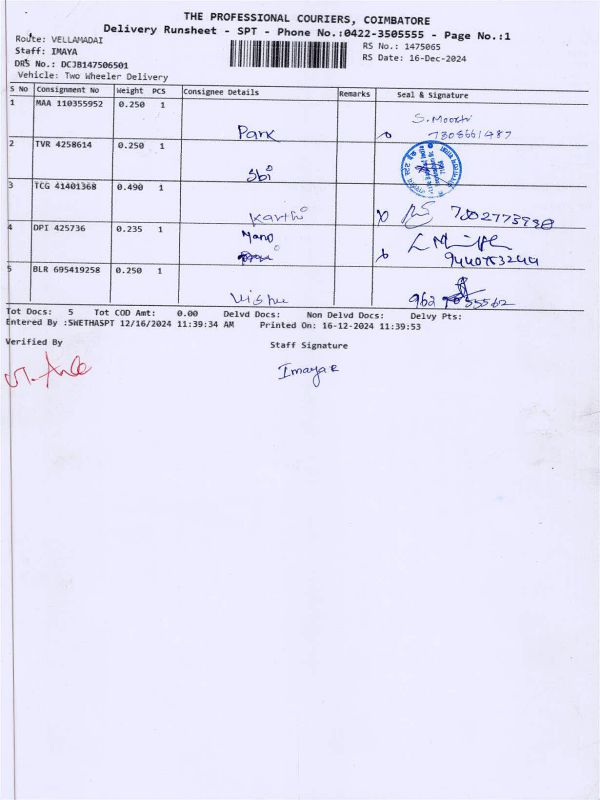 THE PROFESSIONAL COURIERS, COIMBATORE
Delivery Runsheet - SPT - Phone No.:0422-3505555 - Page No.:1
Route: VELLAMADAI
RS No.: 1475065
Staff: IMAYA
RS Date: 16-Dec-2024
DRS No.: DCJB147506501
Vehicle: Two Wheeler Delivery
S No Consignment No Weight PCS Consignee Details Remarks Seal & Signature
1 MAA 110355952 0.250 1
S. Moorthi
Park 7305661487
2 TVR 4258614 0.250 1
Sbi
3 TCG 41401368 0.490 1
Karthi
4 DPI 425736 0.235 1
Mano
5 BLR 695419258 0.250 1
Vishnu
Tot Docs: 5 Tot COD Amt: 0.00 Delvd Docs: Non Delvd Docs: Delvy Pts:
Entered By :SWETHASPT 12/16/2024 11:39:34 AM Printed On: 16-12-2024 11:39:53
Verified By
Staff Signature
Imaya R